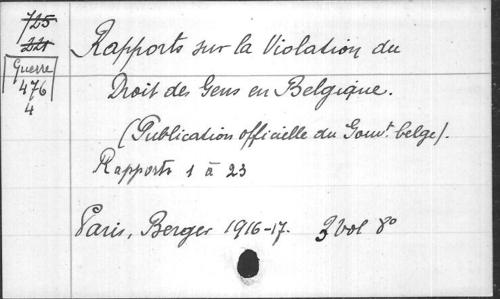 725
221
Guerre
476
4
Rapports sur la Violation du
Droit des Gens en Belgique.
(Publication officielle du Gouvt belge).
Rapports 1 à 23
Paris, Berger 1916-17. 2 vol 8°